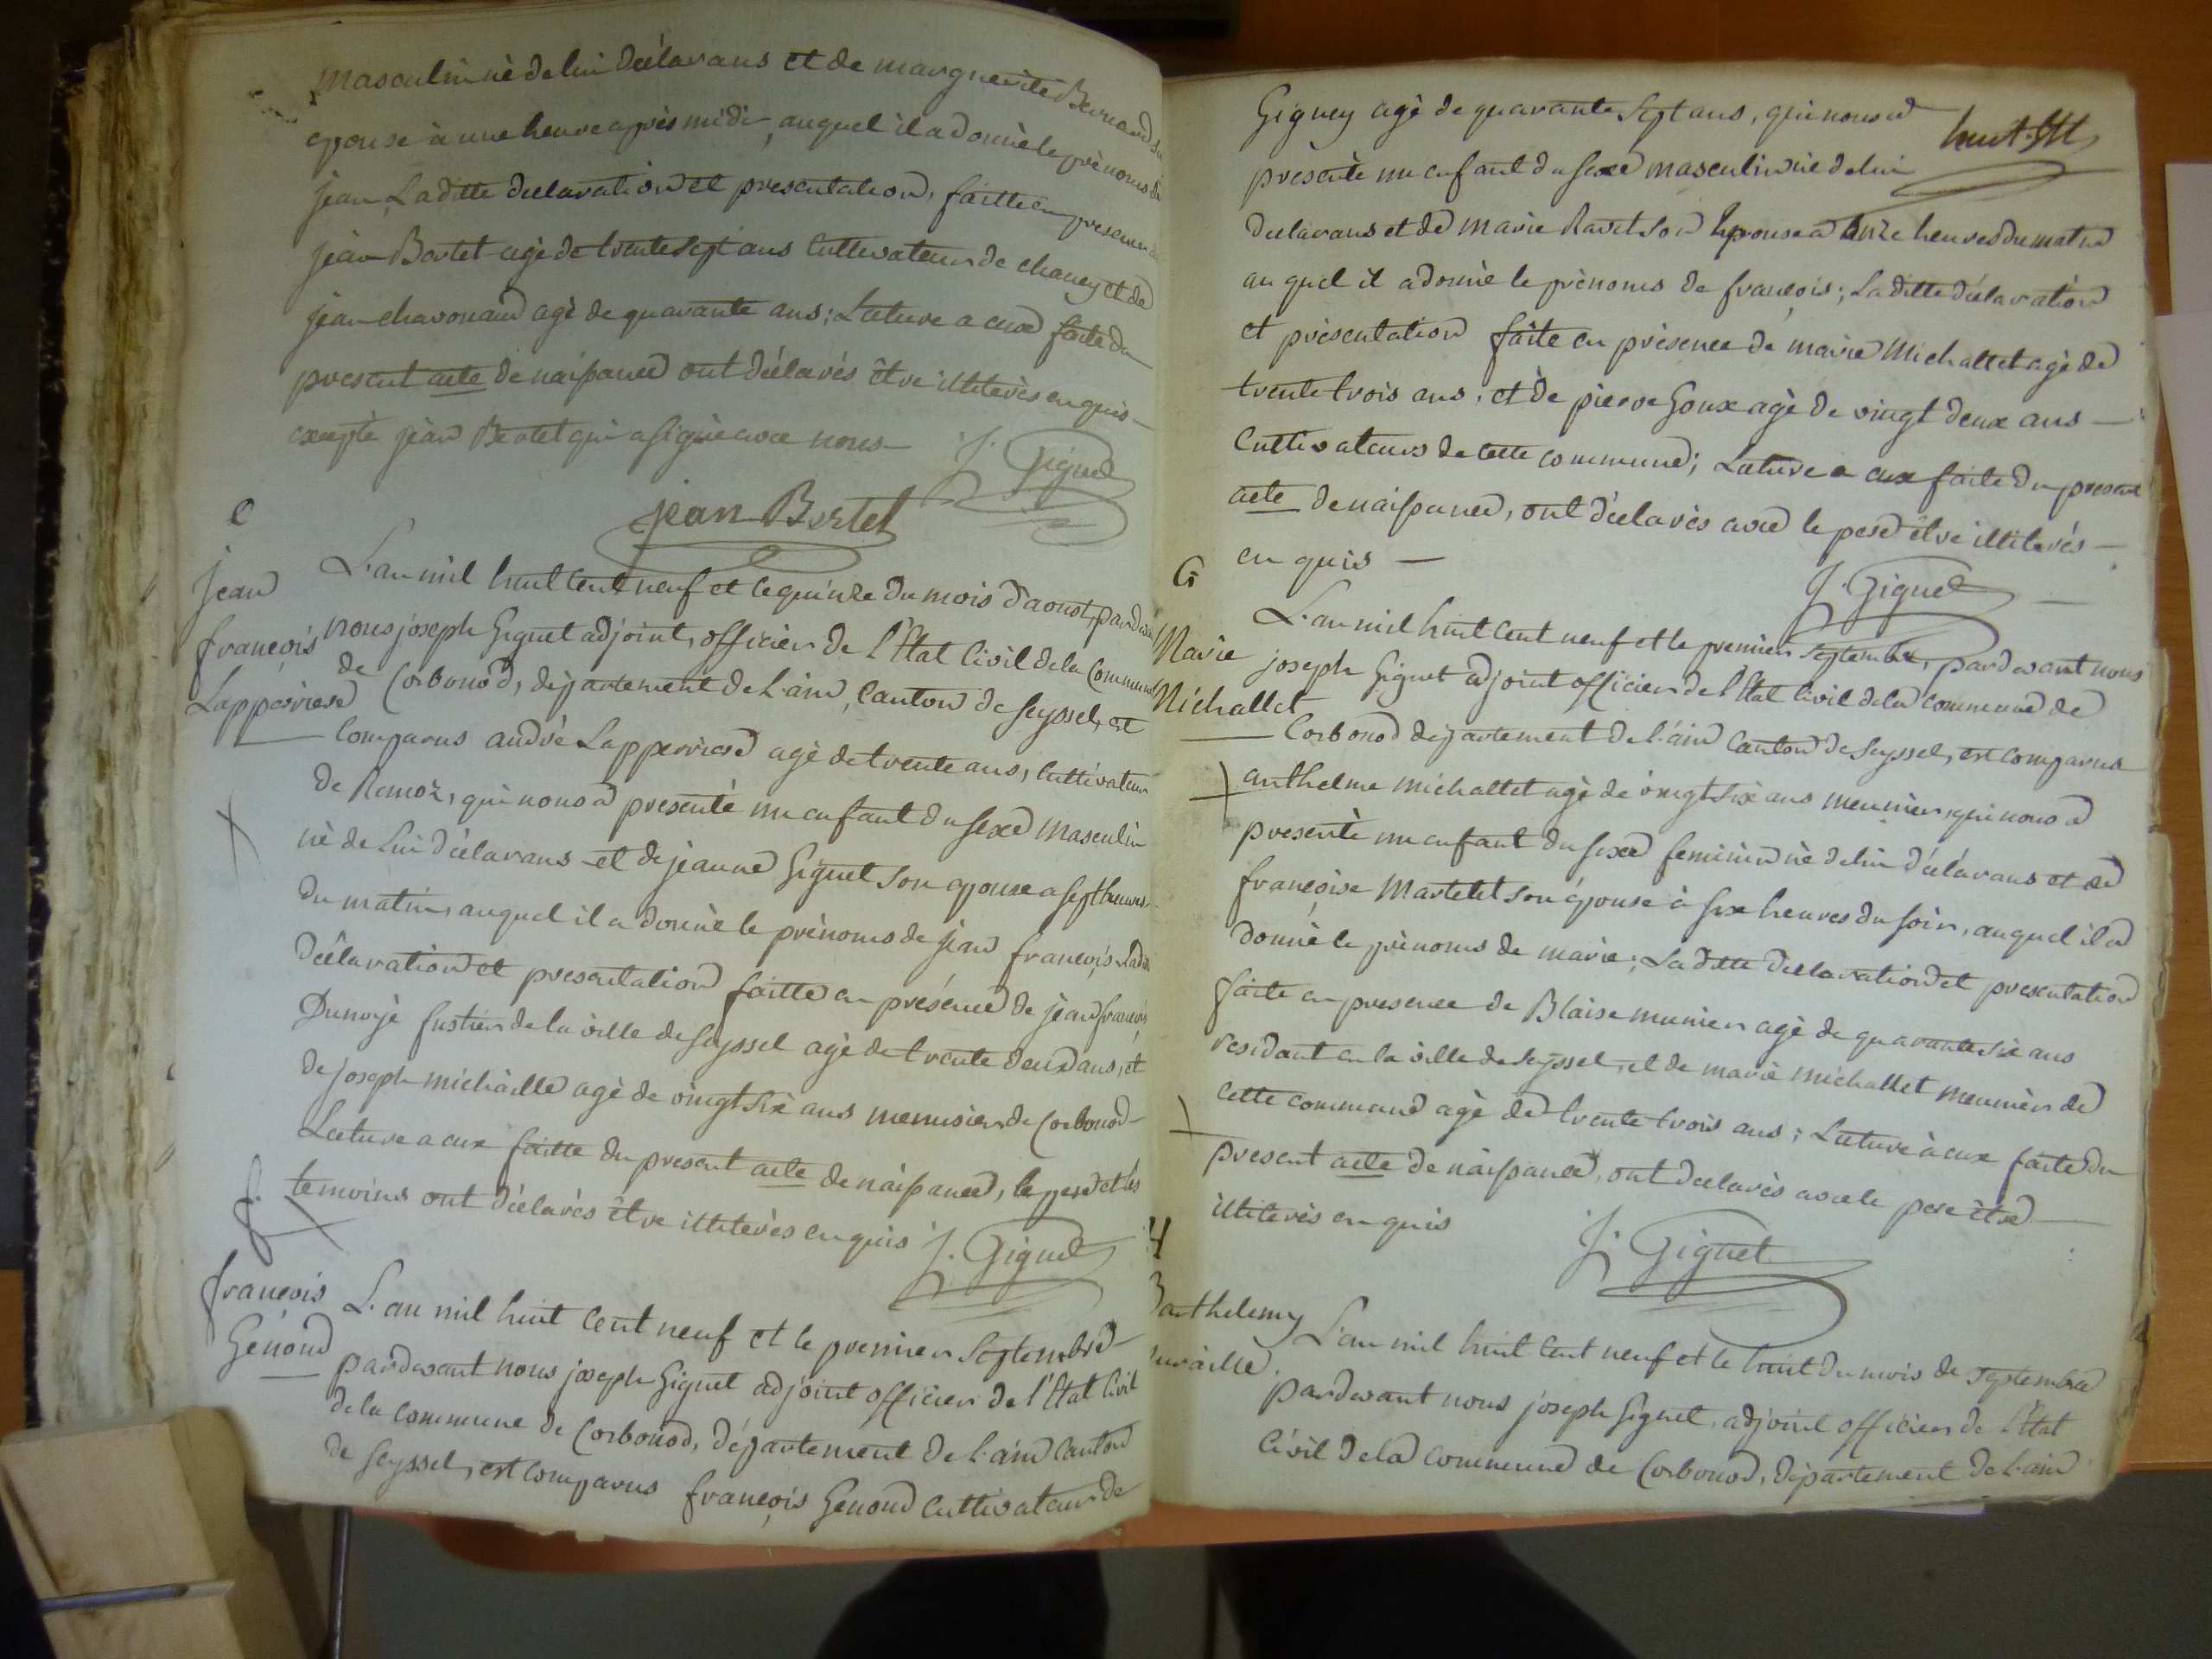 masculin nè de lui dèclarans et de marguerite Bernard
epouse à une heure après midi, auquel il a donnè le prènoms de
jean, La ditte declaration et presentation, faitte en presence
jean Bertet agè de trente sept ans Cultivateur de chaney et de
jean chavonand agè de quarante ans; Lecture a eux faite du
present acte de naissance ont dèclarés être illiterès enquis
excepté jean Bertet qui a signè avec nous
J. Giguet
jean Bertet
e
Jean
françois
Lapperiere
L'an mil huit cent neuf et le quinze du mois d'aoust, pardevant
nous joseph Giguet adjoint, officier de l'Etat Civil de la Commune
de Corbonod, dèpartement de L'ain, Canton de Seyssel, est
Comparus andrè Lapperriere agè de trente ans, Cultivateur
de Remoz, qui nous a presentè un enfant du sexe masculin
nè de Lui dèclarans et de jeanne Giguet son epouse a sept heures
du matin, auquel il a donnè le prènoms de jean françois, Ladite
dèclaration et presentation faitte en présence de jean françois
Dunoyè fustier de la ville de Seyssel agè de trente deux ans, et
de joseph michaille agè de vingt six ans menusier de Corbonod
Lecture a eux faitte du present acte de naissance, le pere et les
temoins ont dèclarès être illiterès enquis J. Giguet
f.
françois
Gènoud
L'an mil huit Cent neuf et le premier Septembre
pardevant nous joseph Giguet adjoint officier de l'Etat Civil
de la Commune de Corbonod, dèpartement de L'ain Canton
de Seyssel, est Comparus françois Genoud Cultivateur de
Gigney agè de quarante Sept ans, qui nous a
prèsentè un enfant du sexe masculin nè de lui
declarans et de marie Ravet son Epouse a onze heures du matin
auquel il a donnè le prènoms de françois; La ditte dèclaration
et prèsentation faite en prèsence de marie Michallet agè de
trente trois ans, et de pierre Goux agè de vingt deux ans
Cultivateurs de cette commune; Lecture a eux faite du present
acte de naissance, ont dèclarès avec le pere être illiterés
enquis
J. Giguet
G
Marie
Michallet
L'an mil huit Cent neuf et le premier Septembre, pardevant nous
joseph Giguet adjoint officier de l'Etat Civil de la Commune de
Corbonod dèpartement de l'ain Canton de Seyssel, est Comparus
anthelme michallet agè de vingt six ans meunier, qui nous a
presentè un enfant du sexe feminin nè de lui dèclarans et de
françoise Martelet son èpouse à six heures du soir, auquel il a
donnè le prènoms de marie; La ditte declaration et presentation
faite en presence de Blaise munier agè de quarante six ans
residant en la ville de Seyssel, et de marie michallet meunier de
cette commune agè de trente trois ans; Lecture à eux faite du
present acte de naissance, ont declarès avec le pere être
illiterès enquis
J. Giguet
H
Barthelemy
L'an mil huit Cent neuf et le huit du mois de Septembre
pardevant nous joseph Giguet, adjoint officier de l'Etat
Civil de la Commune de Corbonod, dèpartement de L'ain